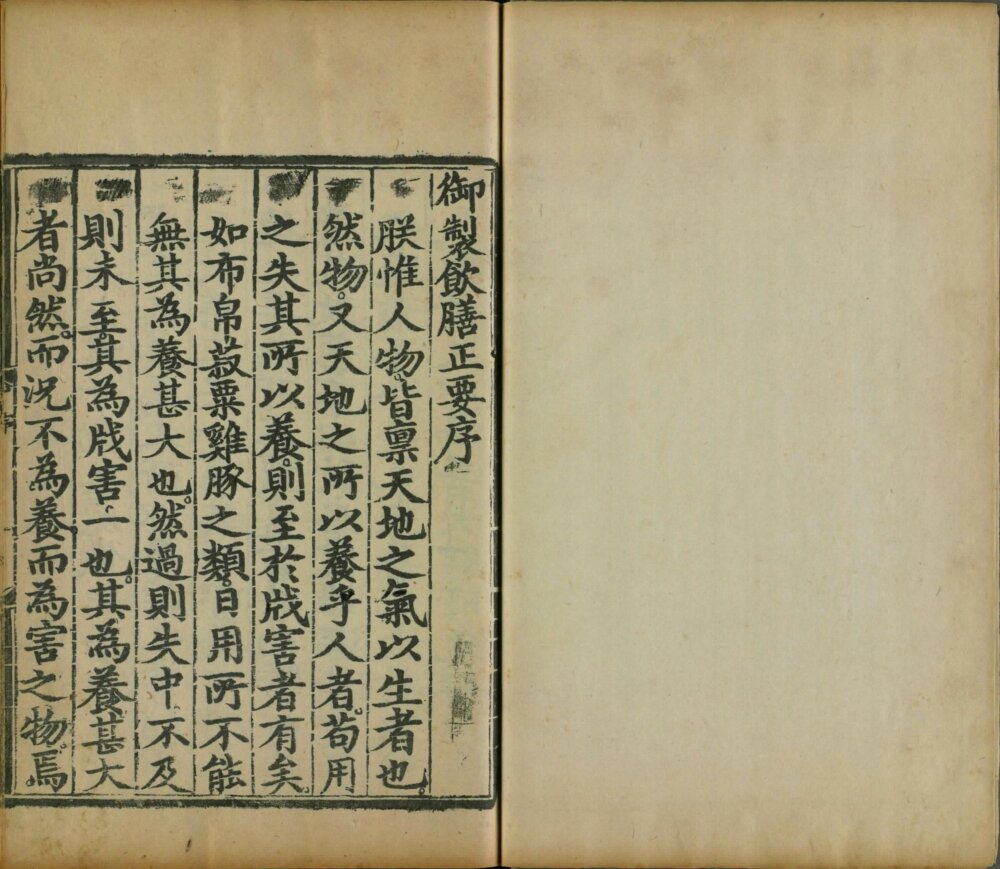 御製飲膳正要序
朕惟人物。皆禀天地之氣以生者也。
然物。又天地之所以養乎人者。苟用
之失其所以養。則至於戕害者有矣
如布帛菽粟雞豚之類。日用所不能
無其為養甚大也。然過則失中不及
則未至其為戕害一也。其為養甚大
者尚然。而況不為養而為害之物。焉